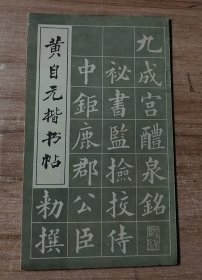 九成宫醴泉銘
祕書監撿挍侍
中鉅鹿郡公臣
勑撰
黄自元楷书帖